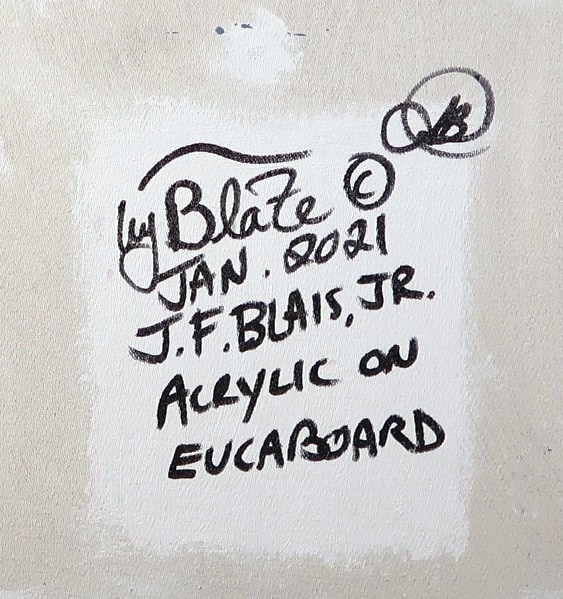 Blaze ©
JAN. 2021
J.F. BLAIS, JR.
ACRYLIC ON
EUCABOARD